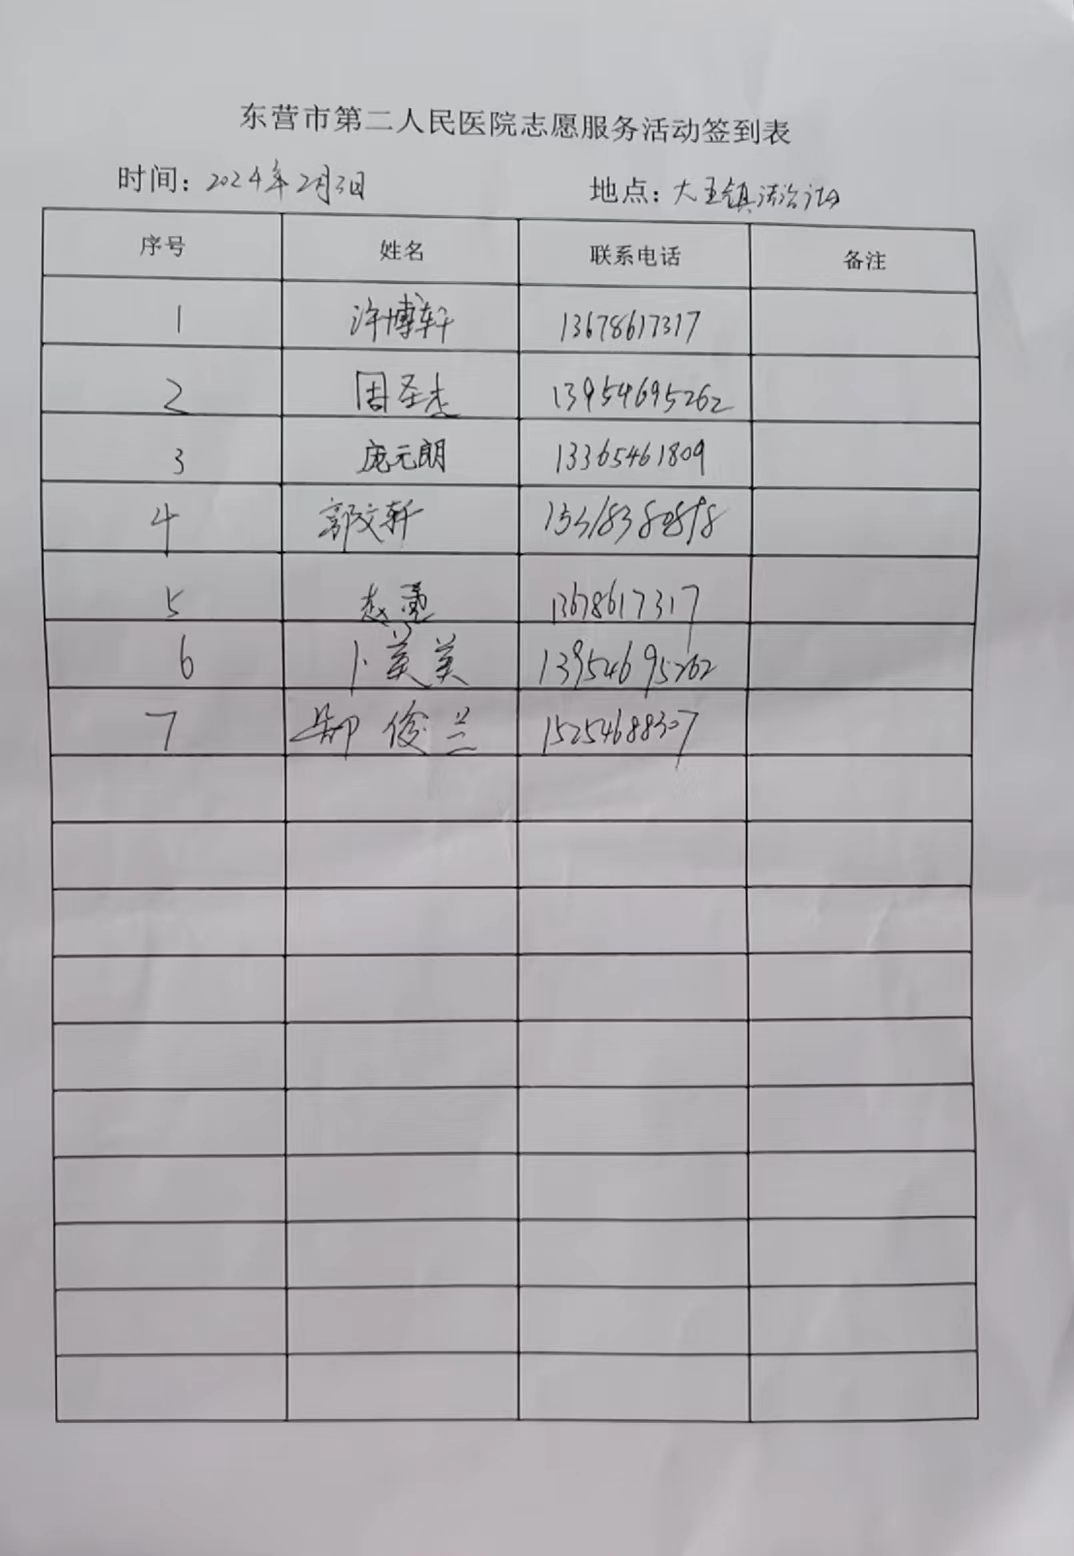 东营市第二人民医院志愿服务活动签到表
时间：2024年2月3日 地点：大王镇法治
序号 姓名 联系电话 备注
1 许博轩 13678617317
2 周圣杰 13954695262
3 庞元朗 13365461809
4 郭文轩
5 赵 13678617317
6 卜美美 13954695262
7 俊兰 15254688307